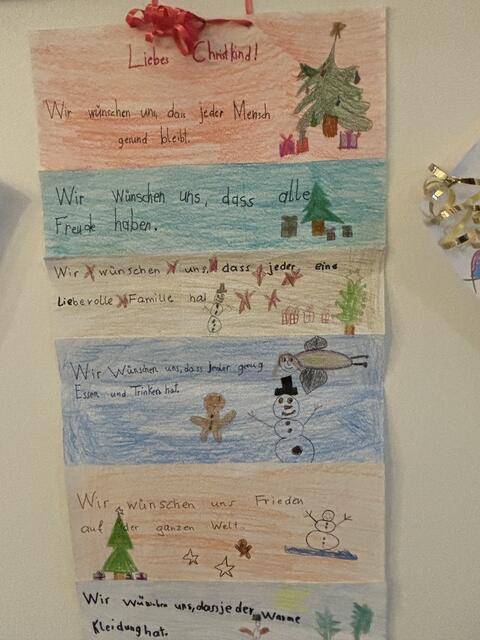 Liebes Christkind!
Wir wünschen uns, dass jeder Mensch
gesund bleibt.
Wir Wünschen uns, dass alle
Freude haben.
Wir wünschen uns, dass jeder eine
Liebevolle Familie hat
Wir Wünschen uns, dass Jeder genug
Essen und Trinken hat.
Wir wünschen uns Frieden
auf der ganzen Welt.
Wir wünschen uns, dass jeder Warme
Kleidung hat.